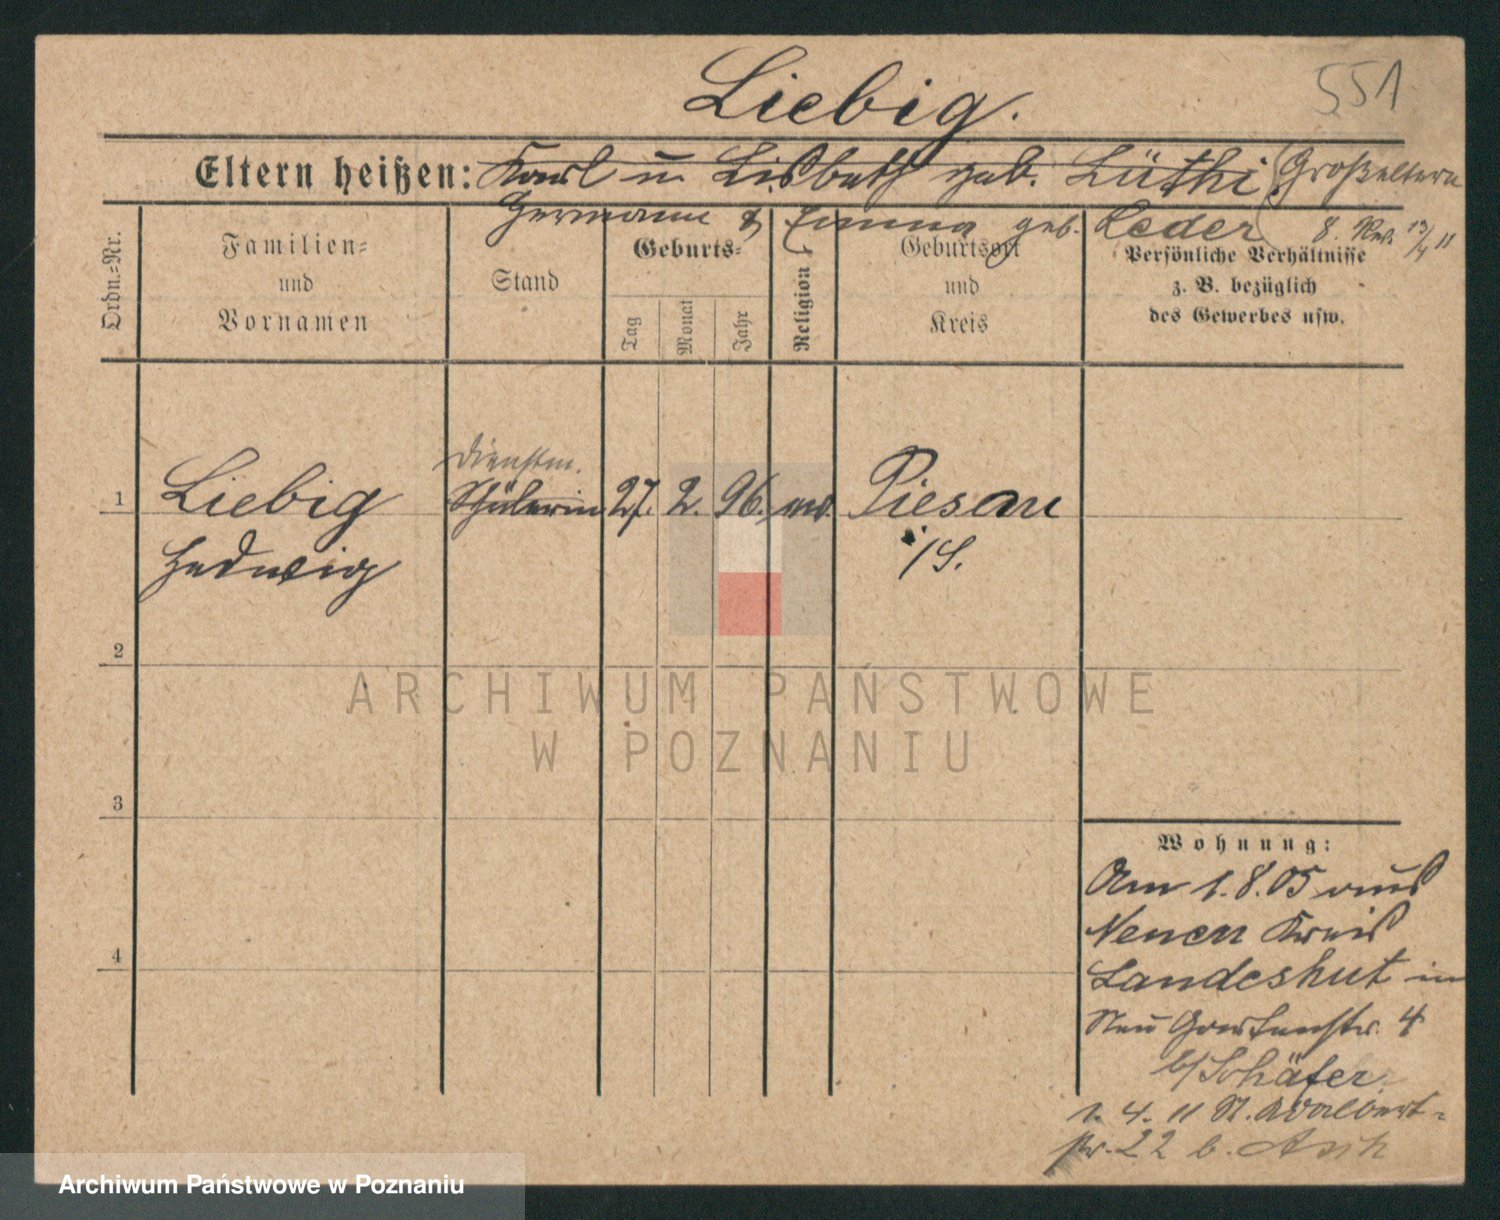 551
Liebig.
Eltern heißen: Karl u. Lisbeth geb. Lüthi (Großeltern
Hermann & Emma geb. Leder 8. Rev. 13/4 11
Ordn.=Nr.
Familien=
und
Vornamen
Stand
Geburts=
Tag
Monat
Jahr
Religion
Geburtsort
und
Kreis
Persönliche Verhältnisse
z. B. bezüglich
des Gewerbes usw.
Dienstm.
1 Liebig Schülerin 27. 2. 96. ev. Piesau
Hedwig i/S.
2
3
4
Wohnung:
Am 1.8.05 aus
Neuen Kreis
Landeshut in
Neu Gartenstr. 4
b/ Schäfer
1. 4. 11 St. Adalbert=
str. 22 b. Asch
ARCHIWUM PAŃSTWOWE
W POZNANIU
Archiwum Państwowe w Poznaniu